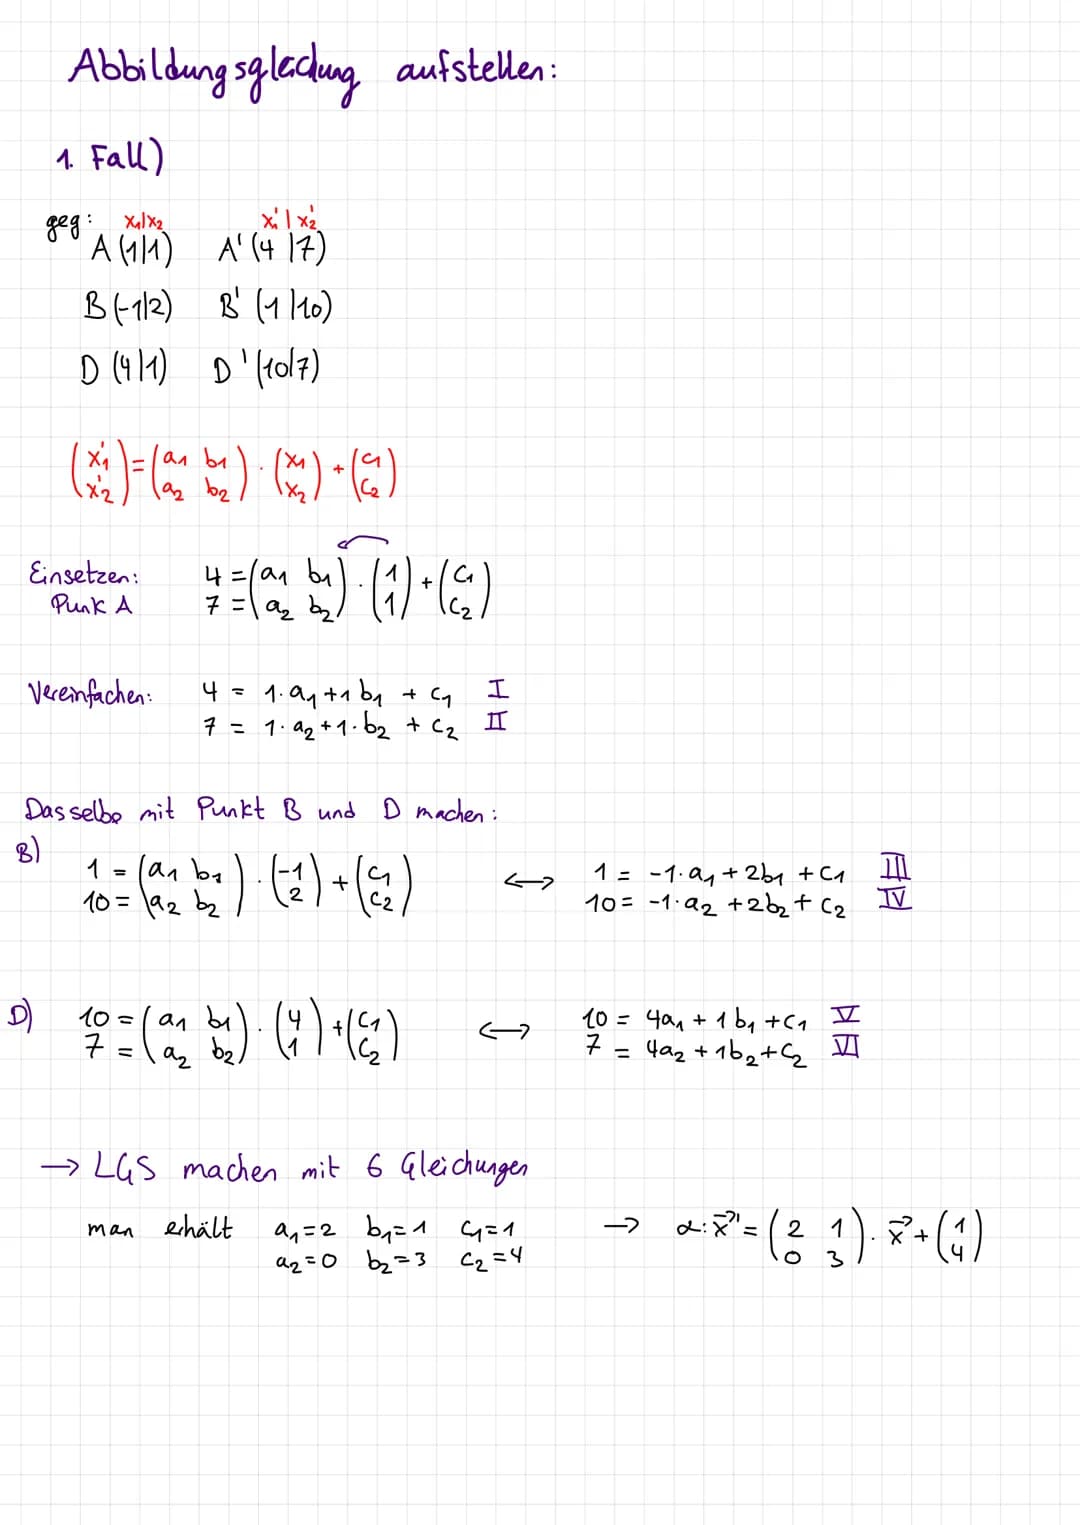 Abbildungsgleichung aufstellen:
1. Fall)
geg: x₁|x₂ x₁'|x₂'
A (1|1) A' (4|7)
B (-1|2) B' (1|10)
D (4|1) D' (10|7)
(x₁' x₂') = (a₁ b₁ a₂ b₂) · (x₁ x₂) + (c₁ c₂)
Einsetzen: 4 = (a₁ b₁) · (1) + (c₁)
Punk A 7 = (a₂ b₂) (1) (c₂)
Vereinfachen: 4 = 1·a₁ + 1 b₁ + c₁ I
7 = 1·a₂ + 1·b₂ + c₂ II
Dasselbe mit Punkt B und D machen:
B) 1 = (a₁ b₁) · (-1) + (c₁) ⟷ 1 = -1·a₁ + 2b₁ + c₁ III
10 = (a₂ b₂) (2) (c₂) 10 = -1·a₂ + 2b₂ + c₂ IV
D) 10 = (a₁ b₁) · (4) + (c₁) ⟷ 10 = 4a₁ + 1b₁ + c₁ V
7 = (a₂ b₂) (1) (c₂) 7 = 4a₂ + 1b₂ + c₂ VI
→ LGS machen mit 6 Gleichungen
man erhält a₁=2 b₁=1 c₁=1 → α: x⃗' = (2 1) · x⃗ + (1)
a₂=0 b₂=3 c₂=4 (0 3) (4)